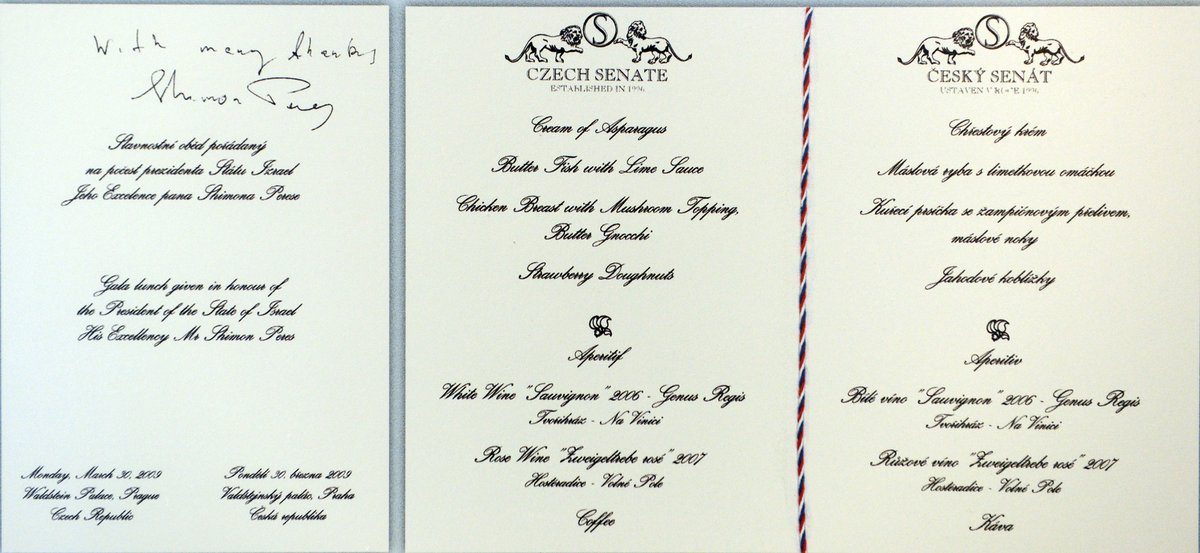 With many thanks
Shimon Peres
Slavnostní oběd pořádaný
na počest prezidenta Státu Izrael
Jeho Excelence pana Shimona Perese
Gala lunch given in honour of
the President of the State of Israel
His Excellency Mr Shimon Peres
Monday, March 30, 2009
Waldstein Palace, Prague
Czech Republic
Pondělí 30. března 2009
Valdštejnský palác, Praha
Česká republika
S
CZECH SENATE
ESTABLISHED IN 1996
Cream of Asparagus
Butter Fish with Lime Sauce
Chicken Breast with Mushroom Topping,
Butter Gnocchi
Strawberry Doughnuts
Aperitif
White Wine "Sauvignon" 2006 - Genus Regis
Tvořihráz - Na Vinici
Rose Wine "Zweigeltrebe rosé" 2007
Hosteradice - Volné Pole
Coffee
S
ČESKÝ SENÁT
USTAVEN V ROCE 1996
Chřestový krém
Máslová ryba s limetkovou omáčkou
Kuřecí prsíčka se žampiónovým přelivem,
máslové noky
Jahodové koblížky
Aperitiv
Bílé víno "Sauvignon" 2006 - Genus Regis
Tvořihráz - Na Vinici
Růžové víno "Zweigeltrebe rosé" 2007
Hosteradice - Volné Pole
Káva